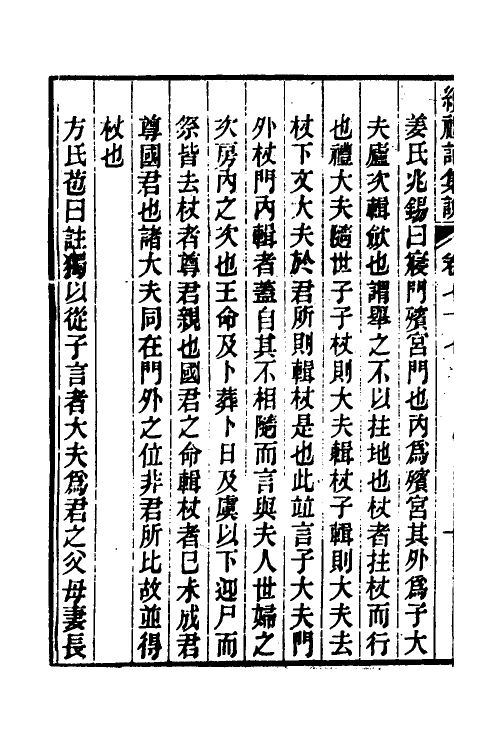 續禮記集說
卷七十七
姜氏兆錫曰寢門殯宮門也內為殯宮其外為子大
夫廬次輯斂也謂舉之不以拄地也杖者拄杖而行
也禮大夫隨世子子杖則大夫輯杖子輯則大夫去
杖下文大夫於君所則輯杖是也此竝言子大夫門
外杖門內輯者蓋自其不相隨而言與夫人世婦之
次房內之次也王命及卜葬卜日及虞以下迎尸而
祭皆去杖者尊君親也國君之命輯杖者已未成君
尊國君也諸大夫同在門外之位非君所比故並得
杖也
方氏苞曰註獨以從子言者大夫為君之父母妻長